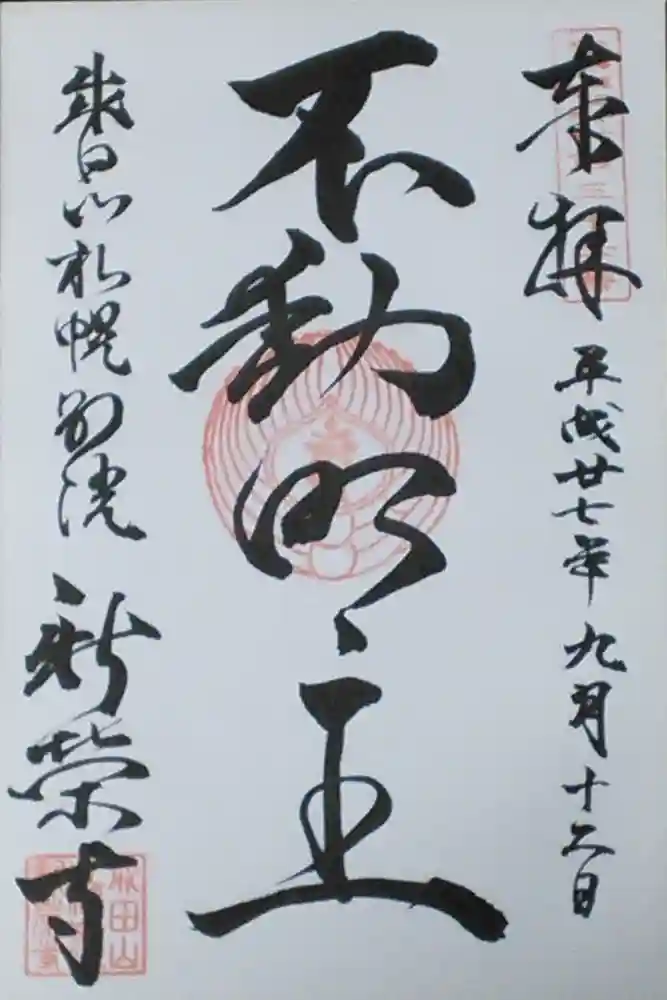 奉拝 平成廿七年九月十二日
不動明王
成田山札幌別院 新榮寺